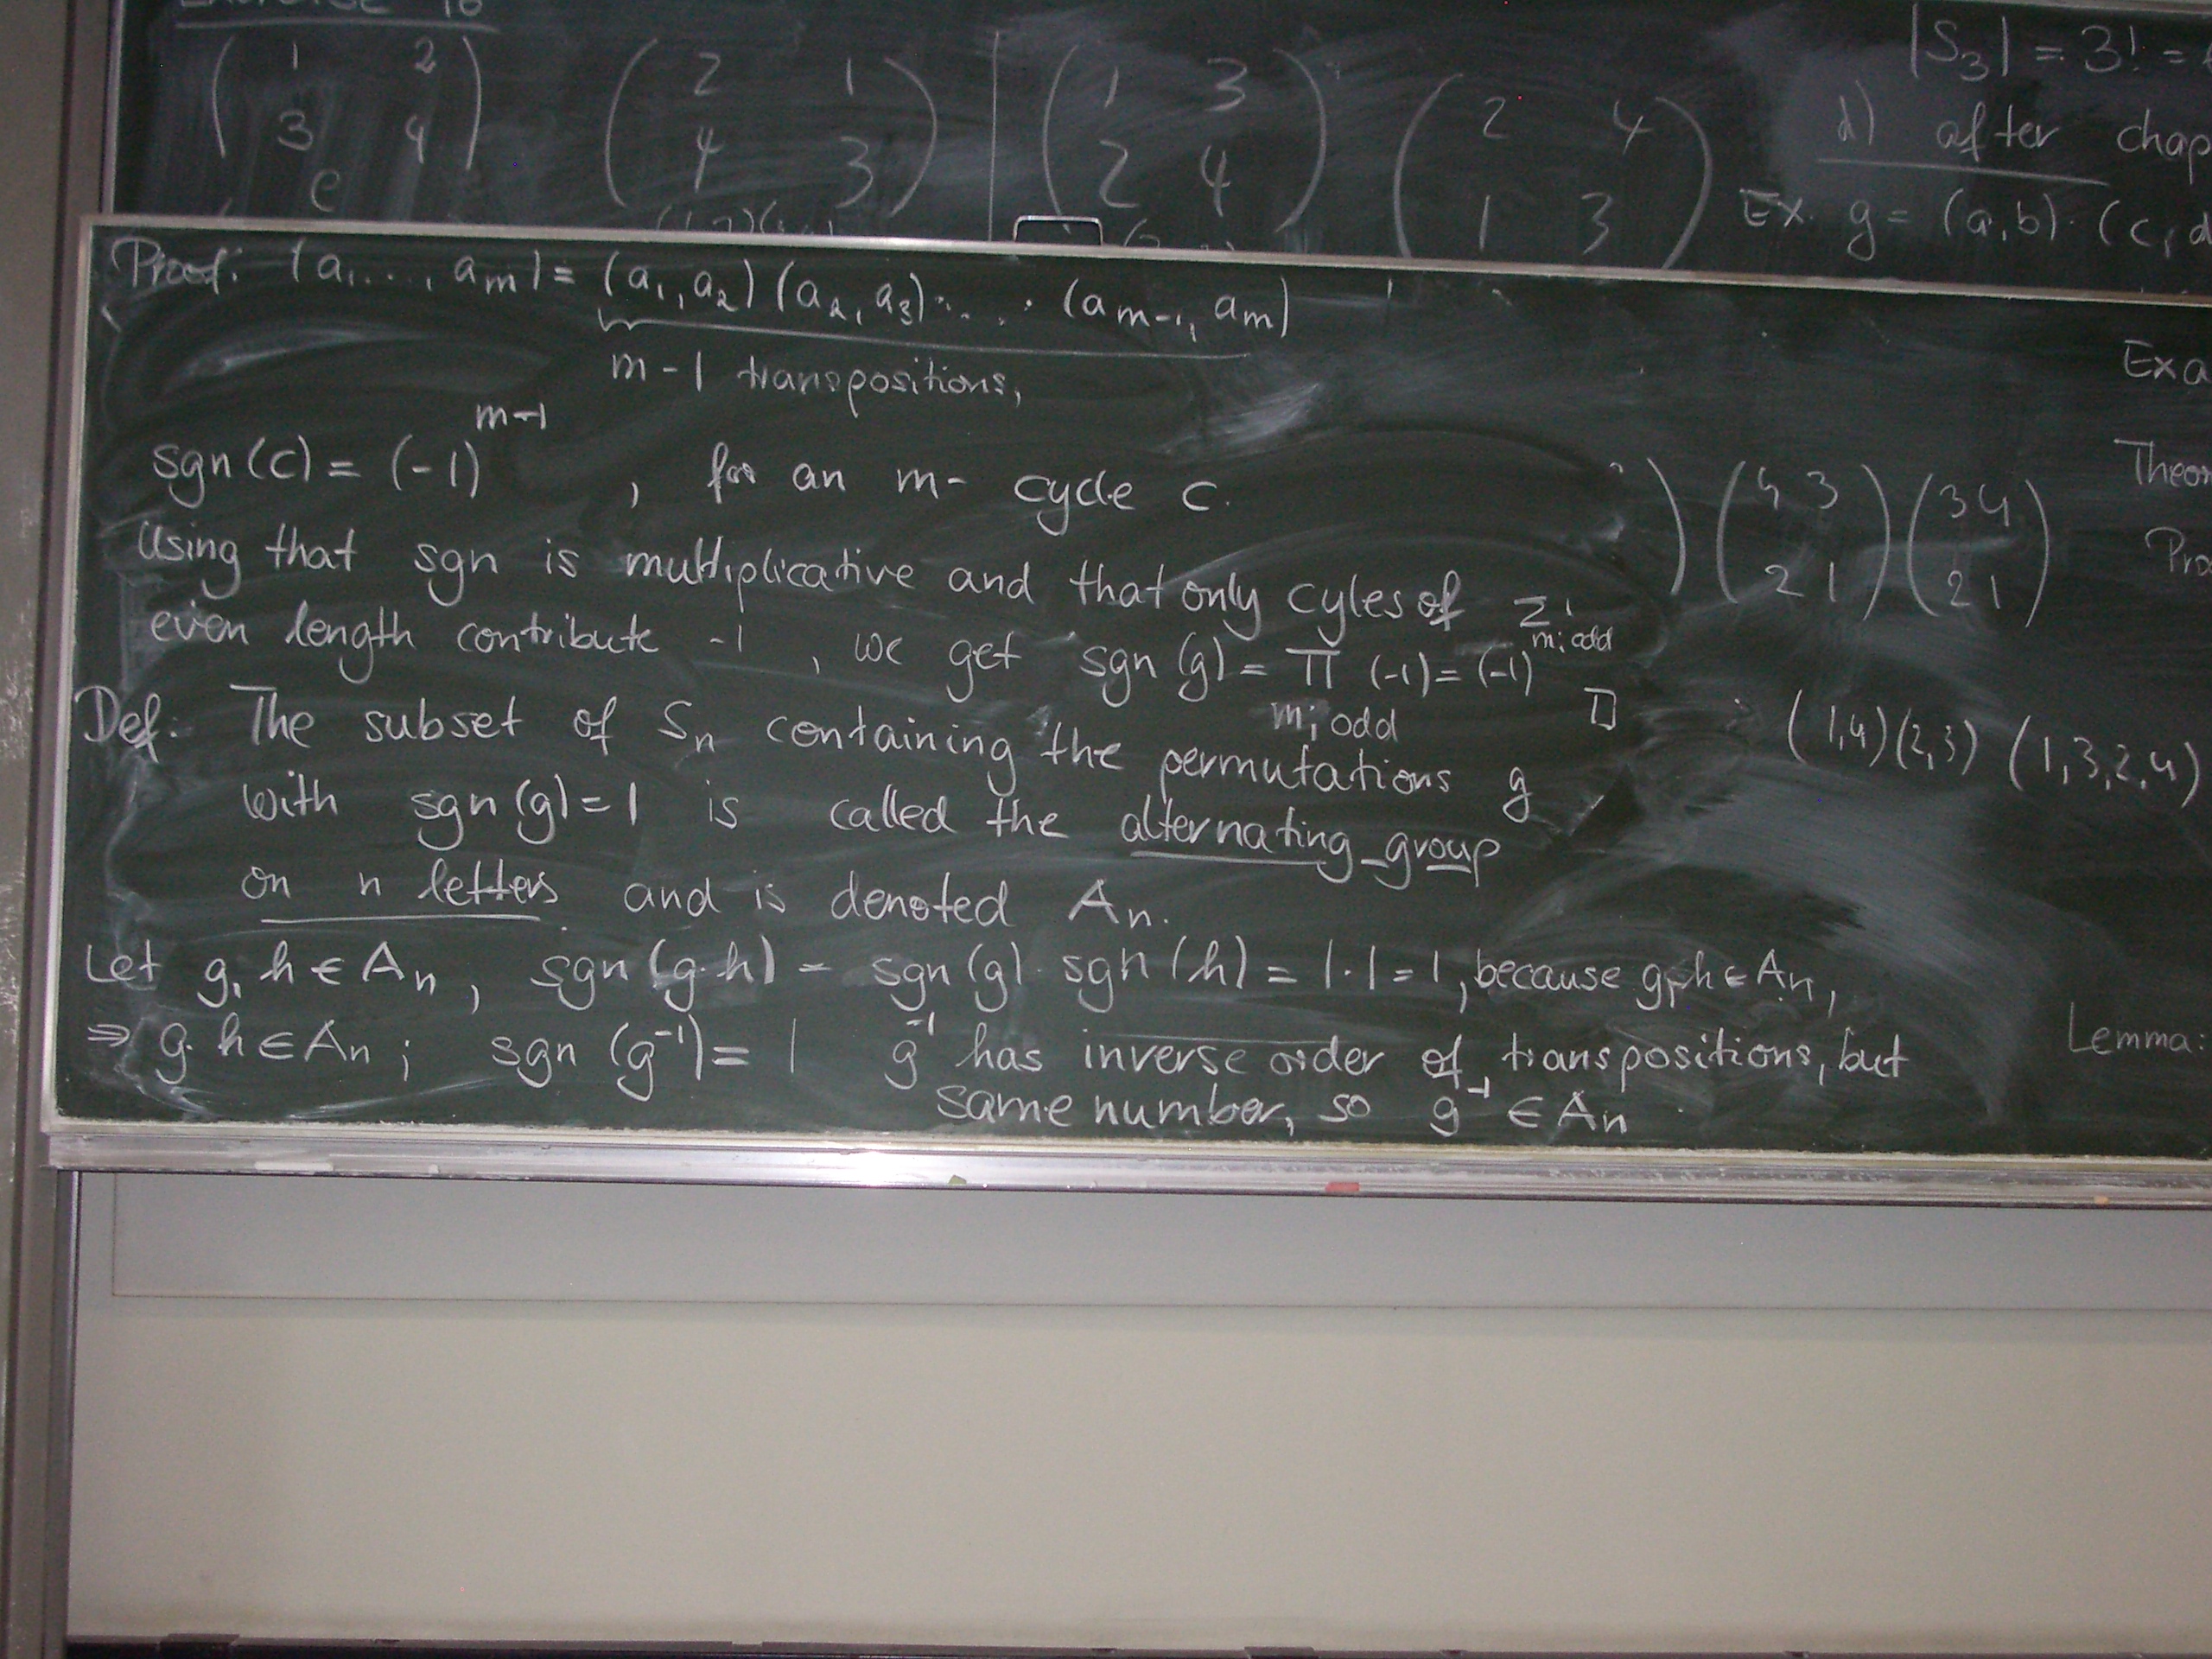 Exercise 10
( 1 2 ) ( 2 1 ) | ( 1 3 ) ( 2 4 )
( 3 4 ) ( 4 3 ) | ( 2 4 ) ( 1 3 )
e
|S₃| = 3! =
d) after chap
Ex. g = (a,b)·(c,d
Proof: (a₁, ..., aₘ) = (a₁,a₂)(a₂,a₃)· ... · (aₘ₋₁, aₘ)
m-1 transpositions,
sgn(c) = (-1)^{m-1}, for an m-cycle c.
Using that sgn is multiplicative and that only cyles of
even length contribute -1, we get sgn(g) = Π_{mᵢ odd} (-1) = (-1)^{Σ 1, mᵢ odd} □
Def: The subset of Sₙ containing the permutations g
with sgn(g) = 1 is called the alternating group
on n letters and is denoted Aₙ.
Let g, h ∈ Aₙ, sgn(g·h) = sgn(g)·sgn(h) = 1·1 = 1, because g,h ∈ Aₙ,
⇒ g·h ∈ Aₙ; sgn(g⁻¹) = 1 g⁻¹ has inverse order of transpositions, but
same number, so g⁻¹ ∈ Aₙ
) ( 4 3 ) ( 3 4 )
( 2 1 ) ( 2 1 )
(1,4)(2,3) (1,3,2,4)
Exa
Theor
Pro
Lemma: